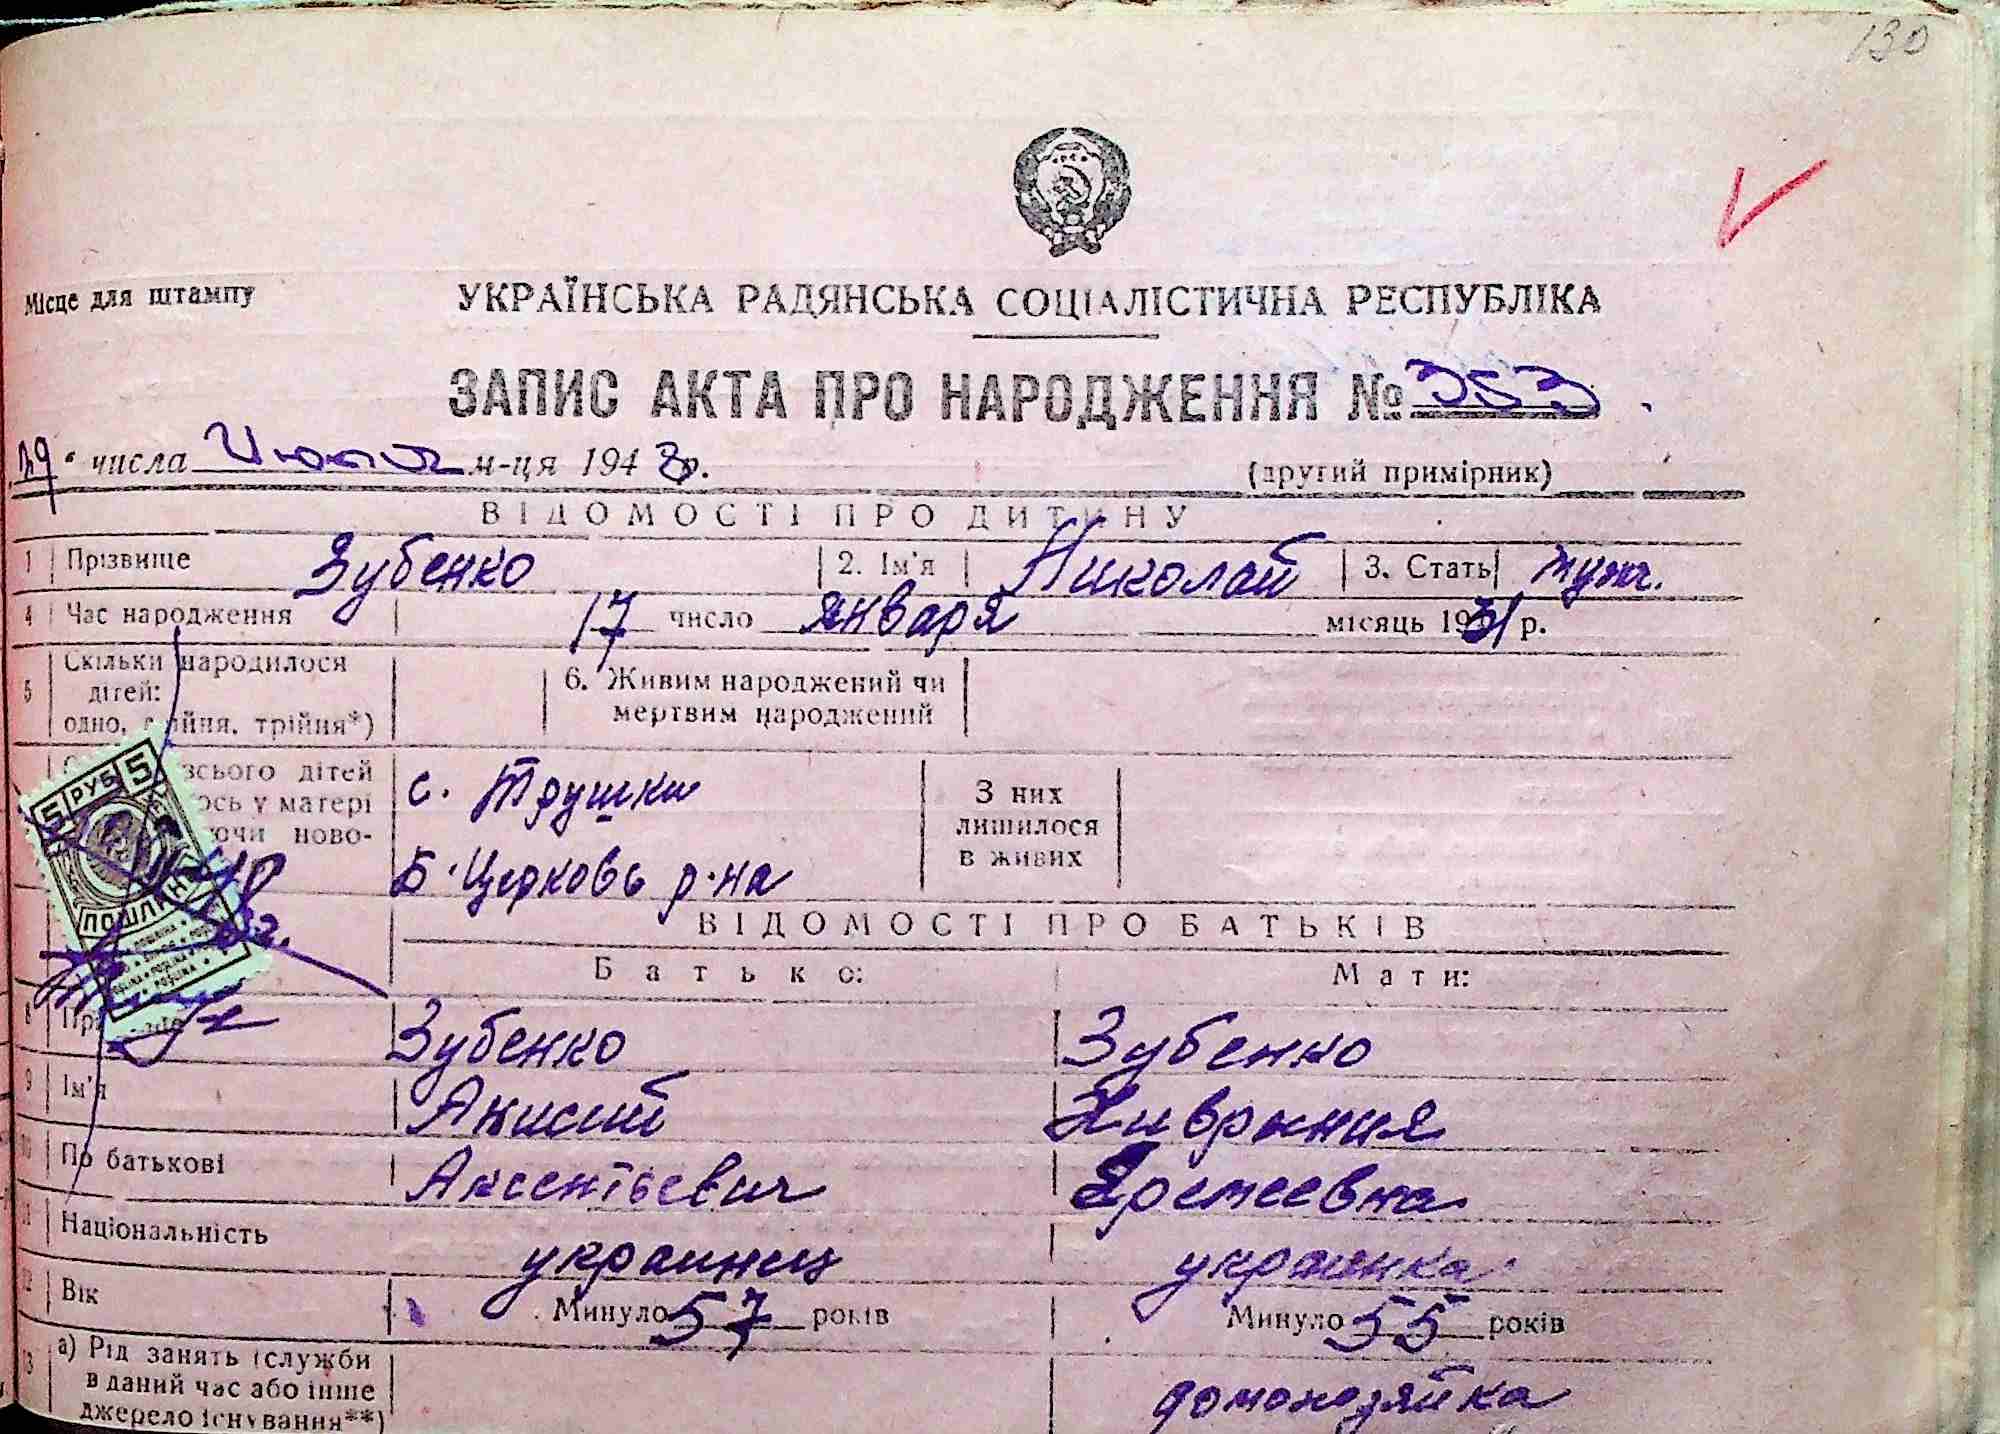 130
Місце для штампу
УКРАЇНСЬКА РАДЯНСЬКА СОЦІАЛІСТИЧНА РЕСПУБЛІКА
ЗАПИС АКТА ПРО НАРОДЖЕННЯ № 353
числа м-ця 1948 р.
(другий примірник)
ВІДОМОСТІ ПРО ДИТИНУ
1 Прізвище Зубенко 2. Ім'я Николай 3. Стать муж.
4 Час народження 17 число января місяць 1931 р.
Скільки народилося
5 дітей: 6. Живим народжений чи
одно, двійня, трійня*) мертвим народжений
всього дітей с. Трушки З них
ось у матері лишилося
ючи ново- Б-Церковь р-на в живих
5 РУБ 5
ПОШЛИН
ВІДОМОСТІ ПРО БАТЬКІВ
Батько: Мати:
8 Зубенко Зубенко
9 Ім'я Акисий
10 По батькові Аксентьевич Яремеевна
11 Національність украинец украинка
12 Вік Минуло 57 років Минуло 55 років
13 а) Рід занять (служби
в даний час або інше домохозяйка
джерело існування**)